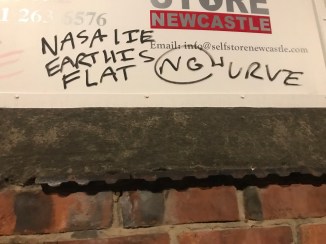 STORE
NEWCASTLE
1 263 5576
Email: info@selfstorenewcastle.com
NASA LIE
EARTH IS
FLAT
NG
URVE